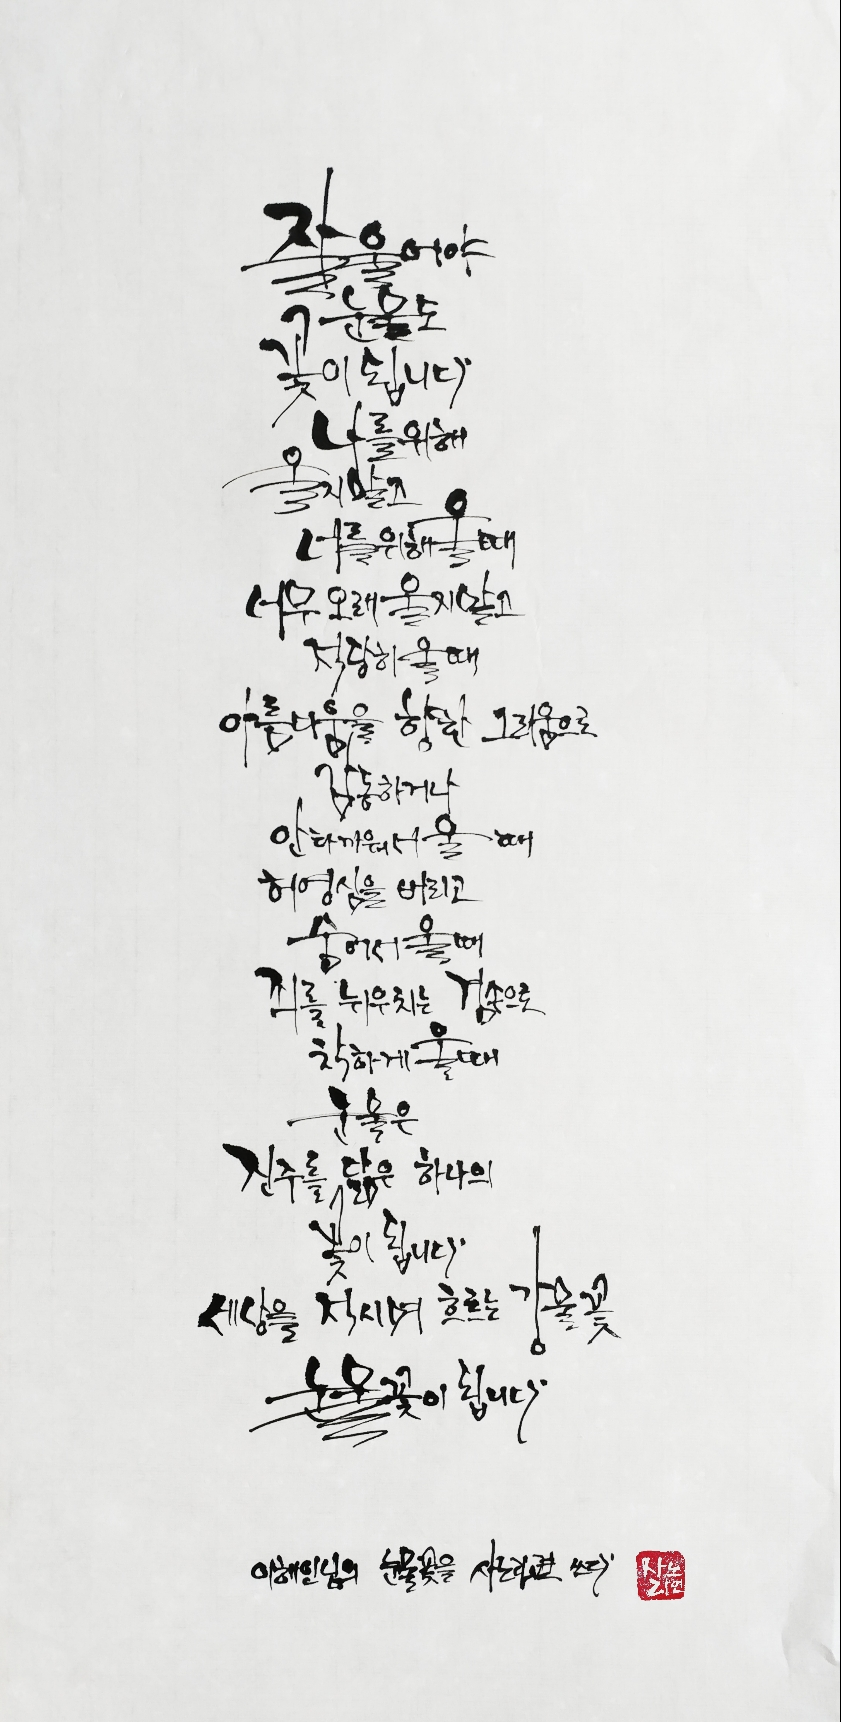 잘 울어야
눈물도
꽃이 됩니다
나를 위해
울지말고
너를 위해 울 때
너무 오래 울지말고
적당히 울 때
아름다움을 향한 그리움으로
감동하거나
안타까워서 울 때
허영심을 버리고
숨어서 울 때
죄를 뉘우치는 겸손으로
착하게 울 때
눈물은
진주를 닮은 하나의
꽃이 됩니다
세상을 적시며 흐르는 강물꽃
눈물꽃이 됩니다
이해인님의 눈물꽃을 쓰다